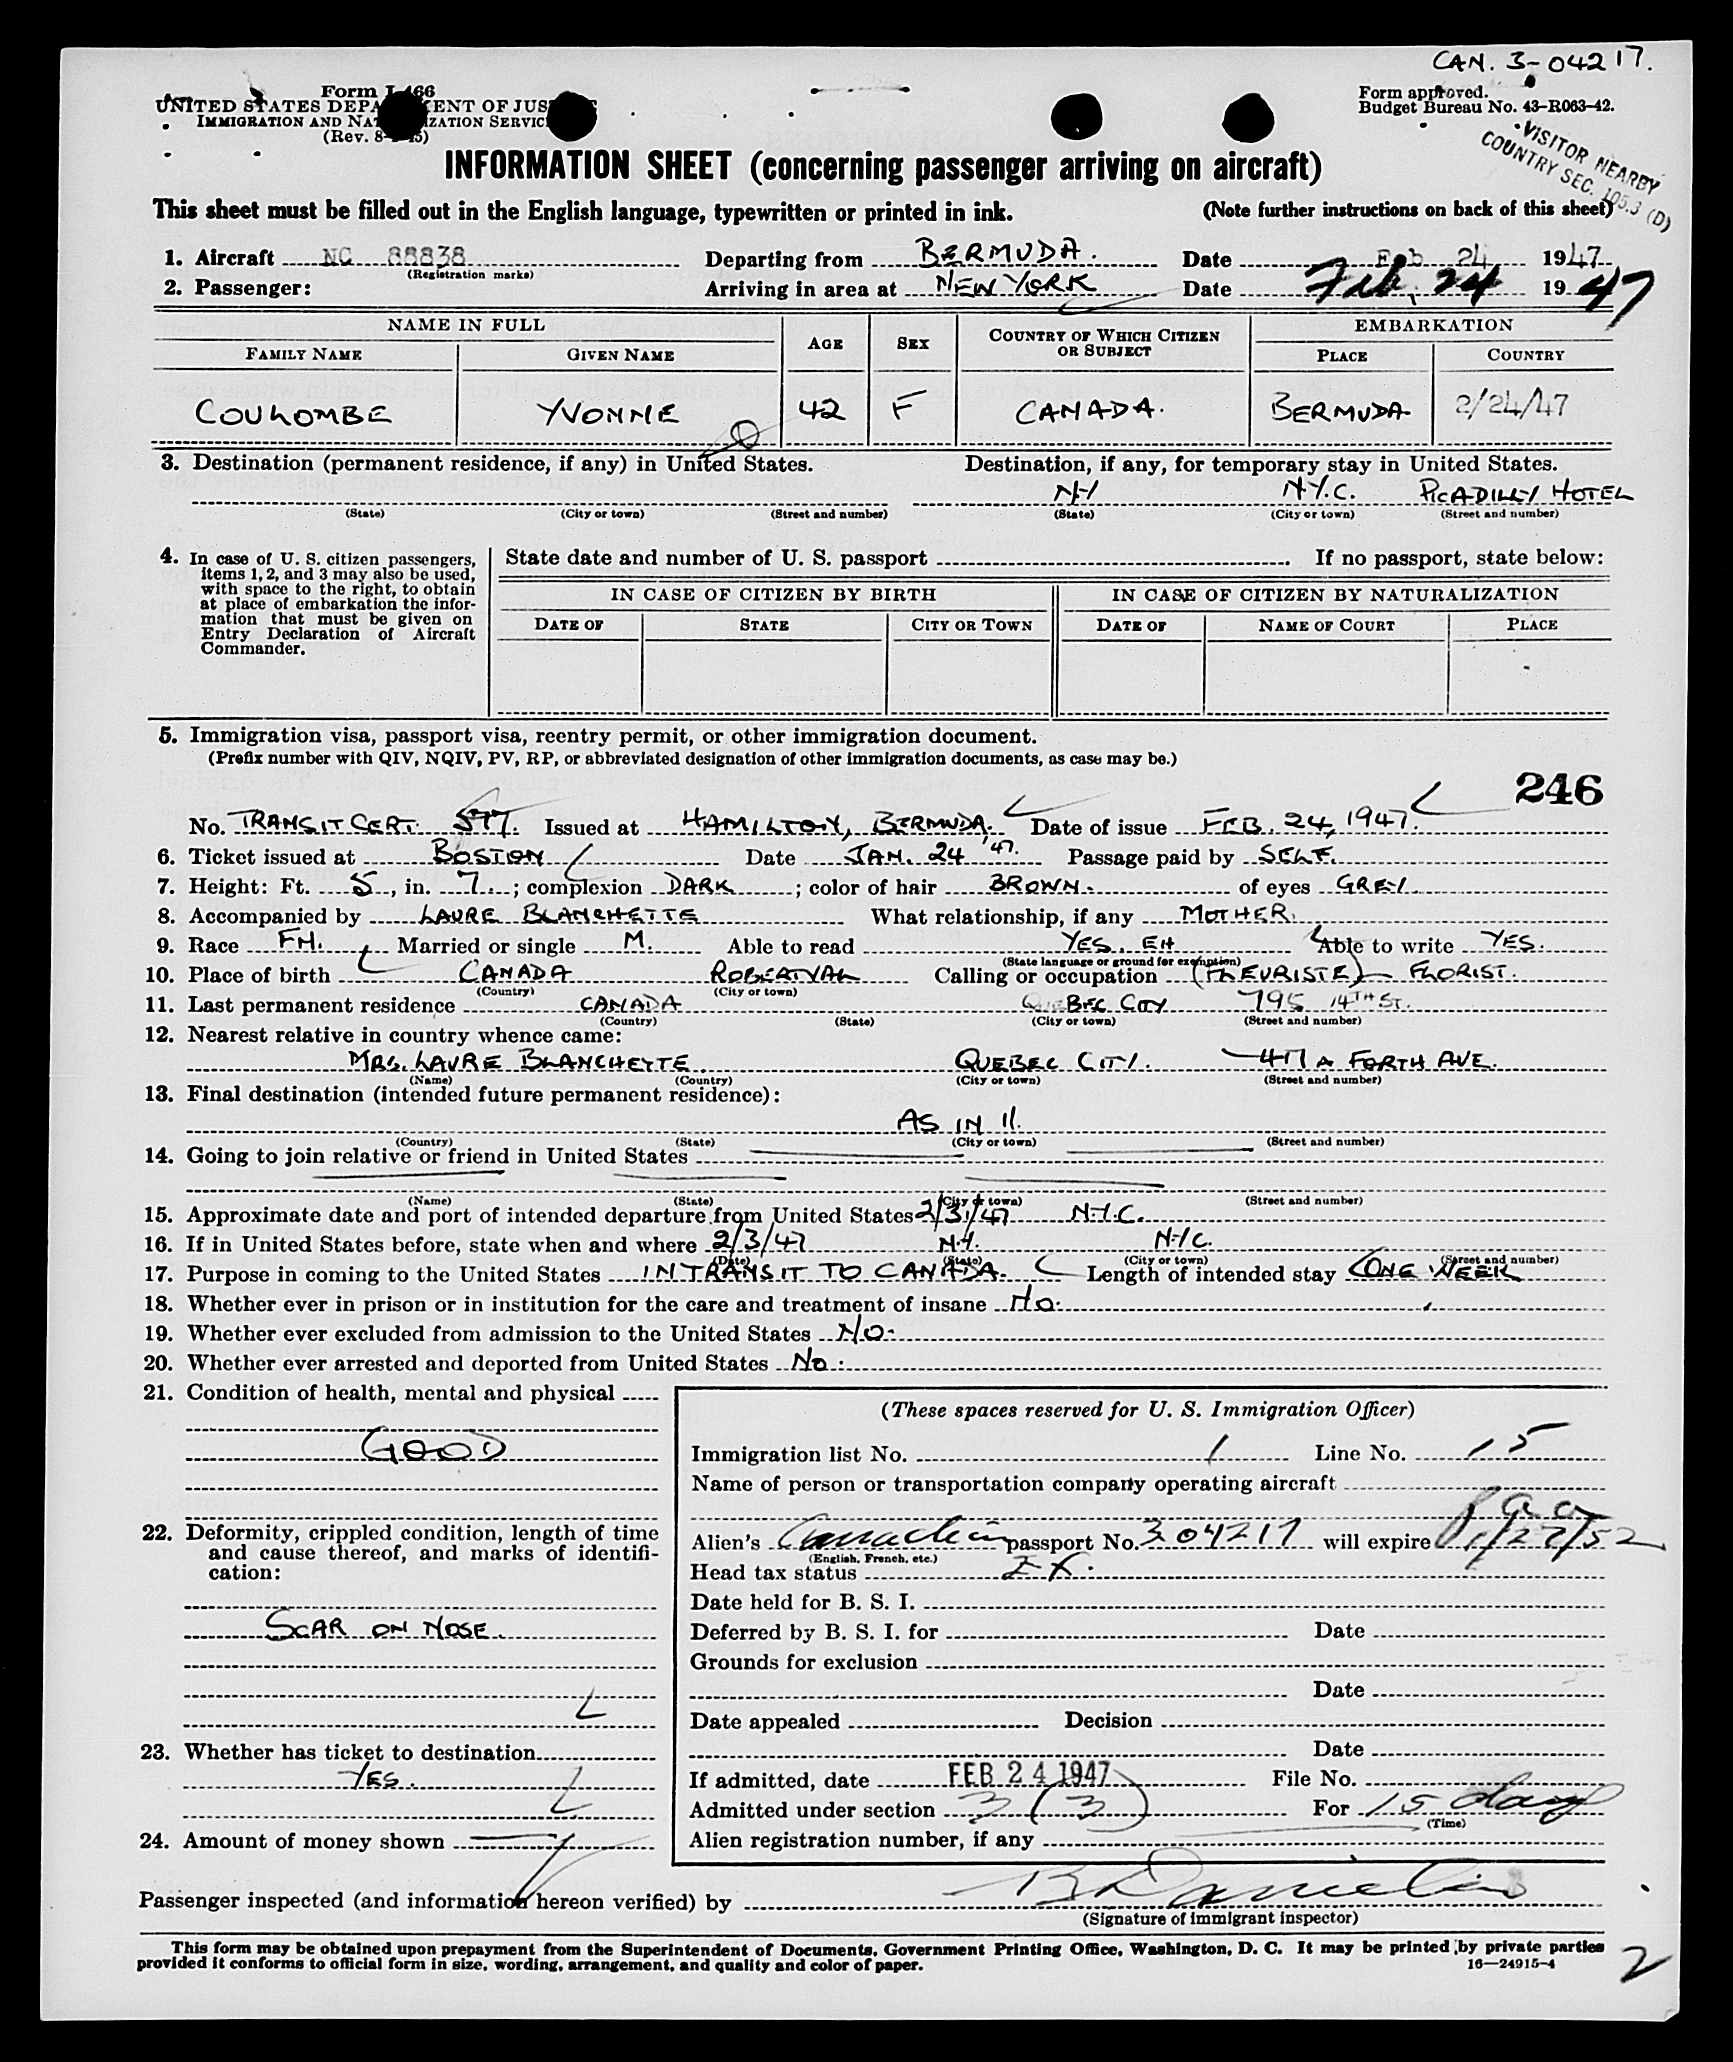 CAN. 3-04217.
Form I-466
UNITED STATES DEPARTMENT OF JUSTICE
IMMIGRATION AND NATURALIZATION SERVICE
(Rev. 8-1-45)
Form approved.
Budget Bureau No. 43-R063-42.
VISITOR NEARBY
COUNTRY SEC. 105.3 (D)
INFORMATION SHEET (concerning passenger arriving on aircraft)
This sheet must be filled out in the English language, typewritten or printed in ink. (Note further instructions on back of this sheet)
1. Aircraft NC 88838 Departing from BERMUDA. Date Feb 24 1947
(Registration marks)
2. Passenger: Arriving in area at NEW YORK Date Feb. 24 1947
NAME IN FULL AGE SEX COUNTRY OF WHICH CITIZEN OR SUBJECT EMBARKATION
FAMILY NAME GIVEN NAME PLACE COUNTRY
COULOMBE YVONNE 42 F CANADA. BERMUDA 2/24/47
3. Destination (permanent residence, if any) in United States. Destination, if any, for temporary stay in United States.
NY N.Y.C. PICADILLY HOTEL
(State) (City or town) (Street and number) (State) (City or town) (Street and number)
4. In case of U. S. citizen passengers, items 1, 2, and 3 may also be used, with space to the right, to obtain at place of embarkation the information that must be given on Entry Declaration of Aircraft Commander.
State date and number of U. S. passport If no passport, state below:
IN CASE OF CITIZEN BY BIRTH IN CASE OF CITIZEN BY NATURALIZATION
DATE OF STATE CITY OR TOWN DATE OF NAME OF COURT PLACE
5. Immigration visa, passport visa, reentry permit, or other immigration document.
(Prefix number with QIV, NQIV, PV, RP, or abbreviated designation of other immigration documents, as case may be.)
246
No. TRANSIT CERT. 577. Issued at HAMILTON, BERMUDA. Date of issue FEB. 24, 1947.
6. Ticket issued at BOSTON Date JAN. 24 '47. Passage paid by SELF.
7. Height: Ft. 5, in. 7.; complexion DARK; color of hair BROWN. of eyes GREY.
8. Accompanied by LAURE BLANCHETTE What relationship, if any MOTHER.
9. Race FH. Married or single M. Able to read YES. EH Able to write YES.
(State language or ground for exemption)
10. Place of birth CANADA ROBERVAL Calling or occupation (FLEURISTE) FLORIST.
(Country) (City or town)
11. Last permanent residence CANADA QUEBEC CITY 795 14TH ST.
(Country) (State) (City or town) (Street and number)
12. Nearest relative in country whence came:
MRS. LAURE BLANCHETTE. QUEBEC CITY. 417A FORTH AVE.
(Name) (Country) (City or town) (Street and number)
13. Final destination (intended future permanent residence):
AS IN 11.
(Country) (State) (City or town) (Street and number)
14. Going to join relative or friend in United States
(Name) (State) (City or town) (Street and number)
15. Approximate date and port of intended departure from United States 2/31/47 N.Y.C.
16. If in United States before, state when and where 2/3/47 N.Y. N.Y.C.
(Date) (State) (City or town) (Street and number)
17. Purpose in coming to the United States IN TRANSIT TO CANADA. Length of intended stay ONE WEEK
18. Whether ever in prison or in institution for the care and treatment of insane No.
19. Whether ever excluded from admission to the United States No.
20. Whether ever arrested and deported from United States No.
21. Condition of health, mental and physical
GOOD
22. Deformity, crippled condition, length of time and cause thereof, and marks of identification:
SCAR ON NOSE.
23. Whether has ticket to destination
YES.
24. Amount of money shown
(These spaces reserved for U. S. Immigration Officer)
Immigration list No. 1 Line No. 15
Name of person or transportation company operating aircraft
P a a
Alien's Canadian passport No. 304217 will expire 1/27/52
(English, French, etc.)
Head tax status EX.
Date held for B. S. I.
Deferred by B. S. I. for Date
Grounds for exclusion
Date
Date appealed Decision
Date
If admitted, date FEB 24 1947 File No.
Admitted under section 3 (3) For 15 days
(Time)
Alien registration number, if any
Passenger inspected (and information hereon verified) by
(Signature of immigrant inspector)
This form may be obtained upon prepayment from the Superintendent of Documents, Government Printing Office, Washington, D. C. It may be printed by private parties
provided it conforms to official form in size, wording, arrangement, and quality and color of paper. 16—24915-4
2